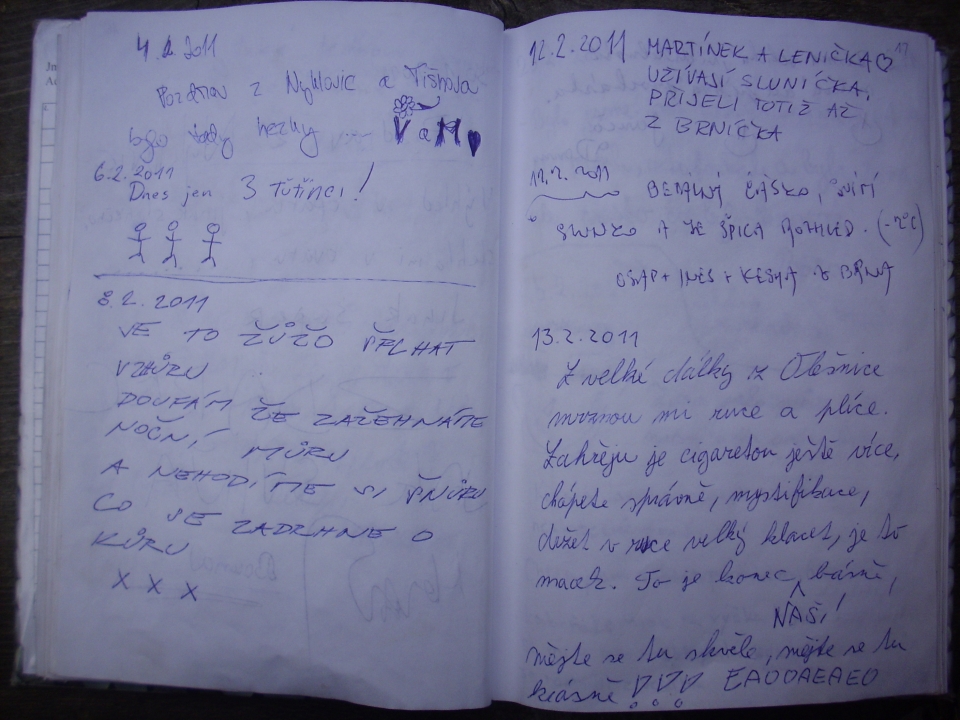 4. 2. 2011
Pozdrav z Nyklovic a Tišnova
bylo tady hezky V a M
6.2.2011
Dnes jen 3 Tuťínci!
8.2.2011
VE TO ŽŮŽO ŠPLHAT
VZHŮRU
DOUFÁM ŽE ZAŽEHNÁME
NOČNÍ MŮRU
A NEHODÍME SI ŠNŮRU
CO SE ZADRHNE O
KŮRU
X X X
12.2.2011 MARTÍNEK A LENIČKA
UŽÍVAJÍ SLUNÍČKA,
PŘIJELI TOTIŽ AŽ
Z BRNÍČKA
12.2.2011 BETÁLNÍ ČÁSKO, SVÍTÍ
SLUNKO A ZE ŠPICA ROZHLED. (-2°C)
OSAP + INES + KESHA Z BRNA
13.2.2011
Z velké dálky z Olešnice
mrznou mi ruce a plíce.
Zahřeju je cigaretou ještě více,
chápete správně, mystifikace,
držet v ruce velký klacet, je to
macek. To je konec básně,
NAŠÍ
mějte se tu skvěle, mějte se tu
krásně !!! EAOOAEAEO